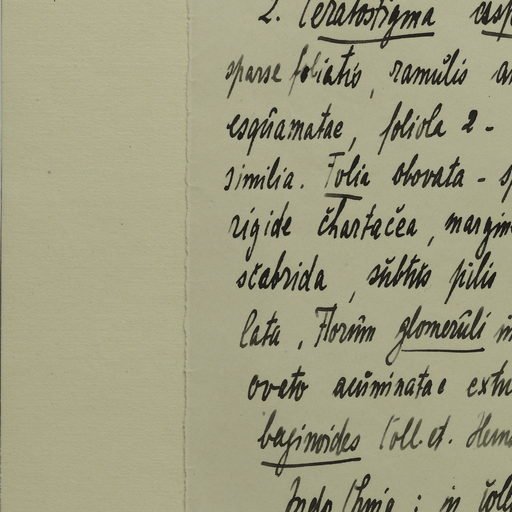 2. Ceratostigma
sparse foliatis, ramulis
esquamatae, foliola 2 -
similia. Folia obovata -
rigide chartacea,
scabrida, subtus pilis
lata, Florum glomeruli
oveto acuminatae
beginoides Coll. et.
Indo China : in